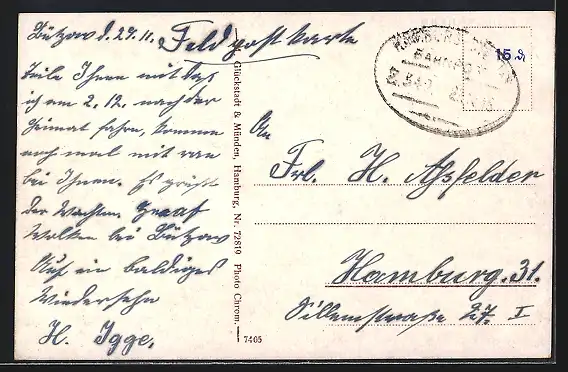 Bützow d. 29. 11. Feldpostkarte
Teile Ihnen mit daß
ich am 2. 12. nach der
Heimat fahre, komme
noch mal mit ran
bei Ihnen. Es grüßt
der
Wolken bei Bützow
Auf ein baldiges
Wiedersehn
H. Igge.
Glückstadt & Münden, Hamburg, Nr. 72819 Photo Chrom.
7405
BAHNPOST
15 ₰
An
Frl. H. Ahsfelder
Hamburg. 31.
Sillemstraße 27. I